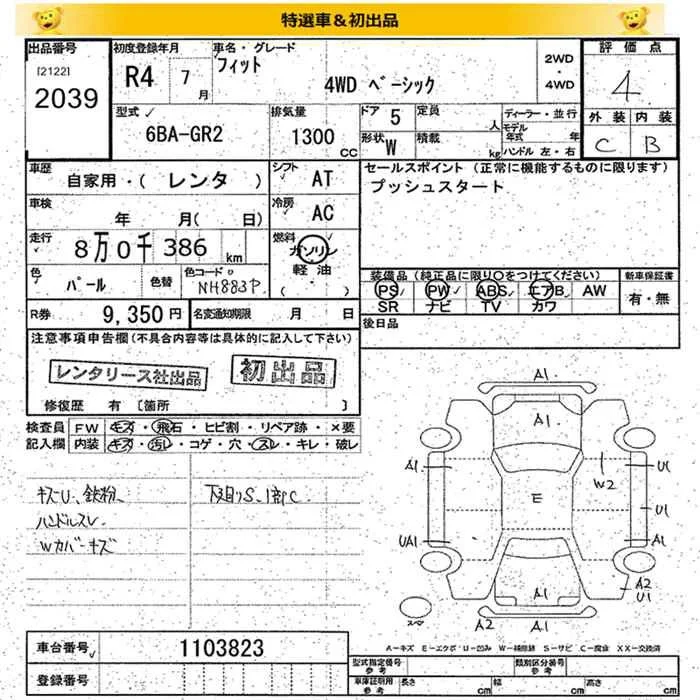 特選車＆初出品
出品番号
[2122]
2039
初度登録年月
R4 7月
車名・グレード
フィット
4WD ベーシック
2WD
・
4WD
評価点
4
外装 内装
C B
型式
6BA-GR2
排気量
1300 CC
ドア 5
定員 人
形状 W
積載 kg
ディーラー・並行
モデル年式 年
ハンドル 左・右
車歴
自家用・( レンタ )
シフト
AT
セールスポイント (正常に機能するものに限ります)
プッシュスタート
車検
年 月( 日)
冷房
AC
走行
8万0千386 km
燃料
ガソリン
軽油
色
パール
色替
色コード
NH883P
装備品 (純正品に限り○をつけてください)
PS PW ABS エアB AW
SR ナビ TV カワ
新車保証書
有・無
R券 9,350 円
名変通知期限 月 日
後日品
注意事項申告欄 (不具合内容等は具体的に記入して下さい)
レンタリース社出品
初出品
修復歴 有 [箇所 ]
検査員 FW キズ・飛石・ヒビ割・リペア跡・×要
記入欄 内装 キズ・汚レ・コゲ・穴・スレ・キレ・破レ
キズU、鉄粉、
下廻りS、1部C
ハンドルスレ
Wカバーキズ
A1
A1
A1
U1
W2
E
U1
UA1
A1
A2
U1
A1
スペア
A2
A1
A-キズ E-エクボ U-凹み W-補修跡 S-サビ C-腐食 XX-交換済
車台番号 1103823
登録番号
型式指定番号
参考
類別区分番号
参考
車庫証明用
参考
長さ cm
幅 cm
高さ cm